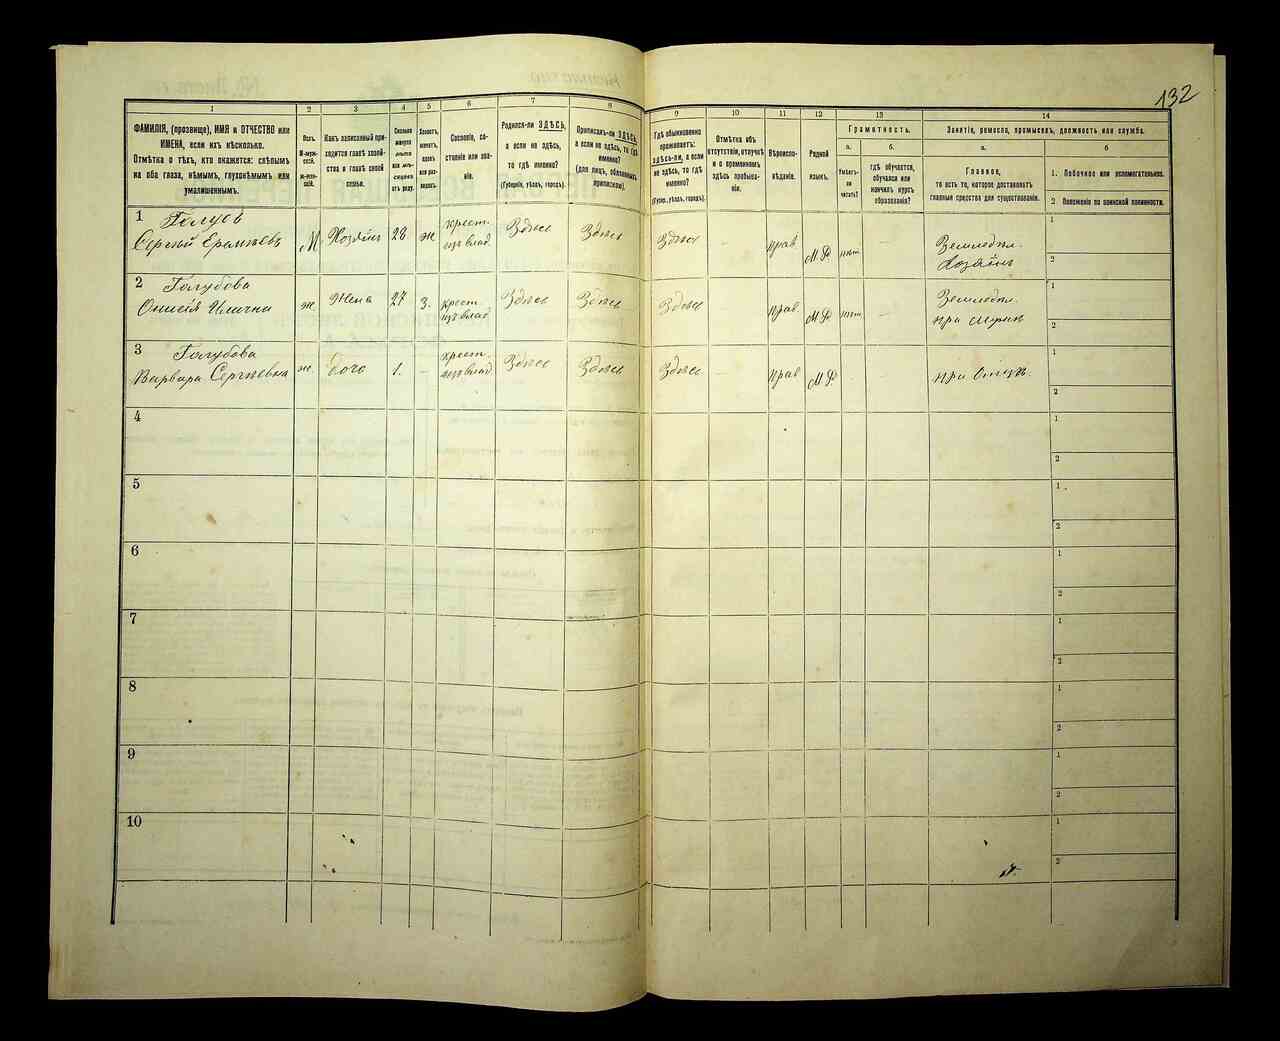 132
1
2
3
4
5
6
7
8
9
10
11
12
13
14
ФАМИЛІЯ, (прозвище), ИМЯ и ОТЧЕСТВО или
ИМЕНА, если ихъ нѣсколько.
Отмѣтка о тѣхъ, кто окажется: слѣпымъ
на оба глаза, нѣмымъ, глухонѣмымъ или
умалишеннымъ.
Полъ.
М-муж-
ской.
ж-жен-
скій.
Какъ записанный при-
ходится главѣ хозяй-
ства и главѣ своей
семьи.
Сколько
минуло
лѣтъ
или мѣ-
сяцевъ
отъ роду.
Холостъ,
женатъ,
вдовъ
или раз-
веденъ.
Сословіе, со-
стояніе или зва-
ніе.
Родился-ли ЗДѢСЬ,
а если не здѣсь,
то гдѣ именно?
(Губернія, уѣздъ, городъ).
Приписанъ-ли ЗДѢСЬ,
а если не здѣсь, то гдѣ
именно?
(для лицъ, обязанныхъ
припискою).
Гдѣ обыкновенно
проживаетъ:
здѣсь-ли, а если
не здѣсь, то гдѣ
именно?
(Губер., уѣздъ, городъ).
Отмѣтка объ
отсутствіи, отлучкѣ
и о временномъ
здѣсь пребыва-
ніи.
Вѣроиспо-
вѣданіе.
Родной
языкъ.
Грамотность.
а.
Умѣетъ-
ли
читать?
б.
гдѣ обучается,
обучался или
кончилъ курсъ
образованія?
Занятіе, ремесло, промыселъ, должность или служба.
а.
Главное,
то есть то, которое доставляетъ
главныя средства для существованія.
б
1. Побочное или вспомогательное.
2 Положеніе по воинской повинности.
1
Сергѣй
М
Хозяинъ
28
ж
крест.
изъ влад
Здѣсь
Здѣсь
Здѣсь
прав
М.Ф
нѣт
Земледѣл.
Хозяинъ
1
2
2 Голубова
ж.
Жена
27
З.
крест.
изъ влад
Здѣсь
Здѣсь
Здѣсь
прав
М.Ф
нѣт.
Земледѣл.
1
2
3 Голубова
Варвара Сергѣевна
ж.
дочь
1.
–
крест.
изъ влад
Здѣсь
Здѣсь
Здѣсь
прав
М.Ф
при Отцѣ.
1
2
4
1
2
5
1
2
6
1
2
7
1
2
8
1
2
9
1
2
10
1
2